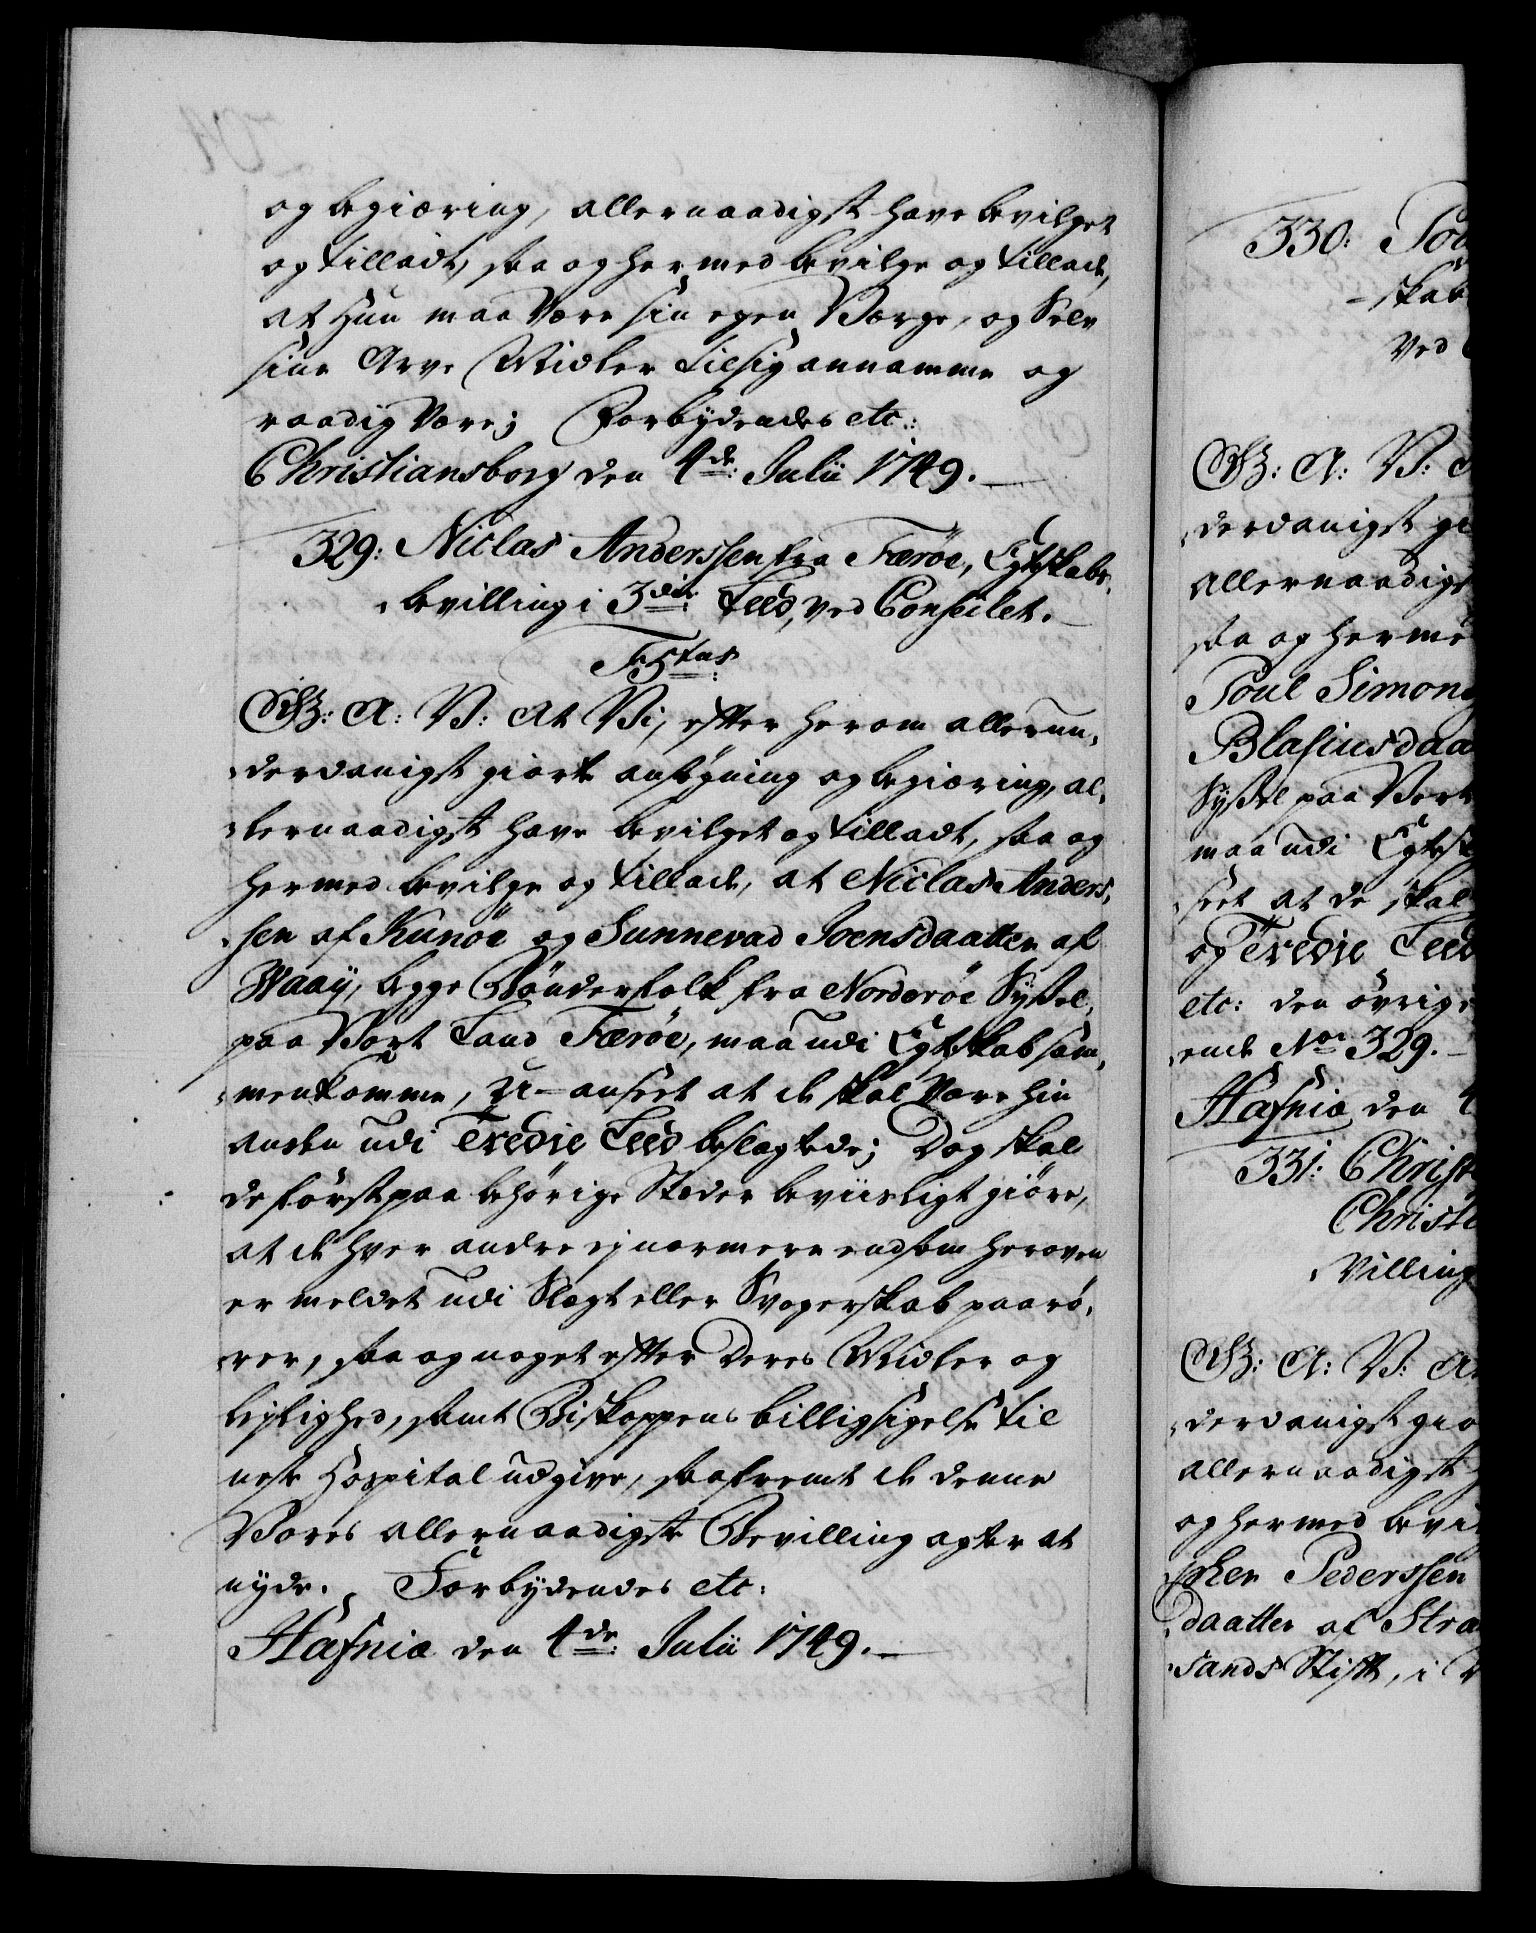 og begiæring, allernaadigst have bevilget
og tilladt, saa og hermed bevilge og tillade,
at Hun maa være sin egen Værge, og Selv
sine Arve Midler til sig annamme og
raadig være; Forbydendes etc:
Christiansborg den 4de: Julii 1749.
329: Niclas Anderssen fra Færöe, Egteskabs
bevilling i 3die Leed, ved Conseilet.
F5tus
Gß: A: V: At Vi, efter herom allerun-
derdanigst giorte ansøgning og begiæring, al-
lernaadigst have bevilget og tilladt, saa og
hermed bevilge og tillade, at Niclas Anders-
sen af Kunöe og Sunnevad Joensdaatter af
Waaÿ, begge Bönderfolk fra Norderöe Sÿssel,
paa Vort Land Færöe, maa udi Egteskab sam-
menkomme, U-anseet at de skal være hin
anden udi Tredie Leed beslægtede; Dog skal
de først paa behörige Stæder beviisligt giöre,
at de hver andre ej nærmere end som heroven
er meldet udi Slægt eller Svogerskab paarö-
rer, saa og noget efter Deres Midler og
lejlighed, samt Biskoppens billigsigelse til
neste Hospital udgive, saafremt de denne
Vores allernaadigste Bevilling agter at
nyde. Forbydendes etc:
Hafniæ den 4de: Julii 1749.
330:
skab
ved
Gß: A: V:
derdanigst gi
allernaadigst
saa og herme
Poul Simons
Blasiusdaa
Sÿssel paa Vort
maa udi Egtesk
seet at de skal
og Tredie Leed
etc: den övrige
ende No 329.
Hafniæ den 4
331: Christ
Christi
villing
Gß: A: V: At
derdanigst gio
allernaadigst
og hermed bevi
pher Pederssen
daatter af Stra
sands Stift, i